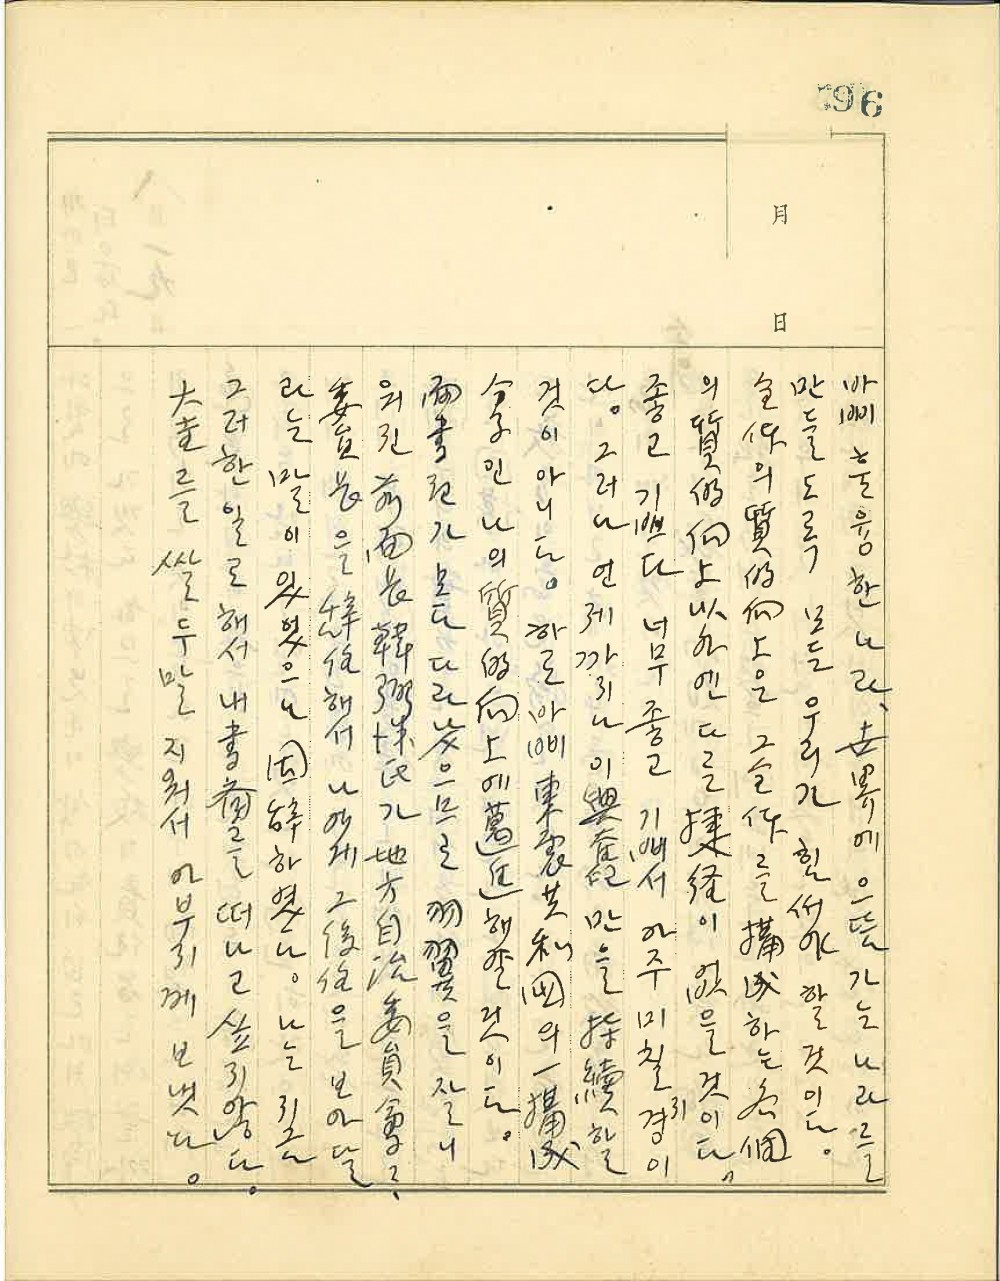 796
月
日
바삐 훌융한 나라, 世界에 으뜸가는 나라를
만들도록 모든 우리가 힘써야 할 것이다.
全体의 質的向上은 그 全体를 構成하는 各個
의 質的向上以外엔 다른 捷経이 없을 것이다.
좋고 기쁘다 너무 좋고 기뻐서 아주 미칠 지경이
다. 그러나 언제까지나 이 興奮만을 持續할
것이 아니다. 하로바삐 東震共和国의 一構成
分子인 나의 質的向上에 萬進해야 것이다.
面書記가 모다 다라낫으므로 羽翼을 잘니
워진 前面長 韓弼洙氏가 地方自治委員会
委員長을 辞任해서 나에게 그 後任을 보아달
라는 말이 있었으나 固辞하였다. 나는 지금
그러한 일로 해서 내 書齋를 떠나고 싶지 않다.
大奎를 쌀 두말 지워서 아부지께 보냇다.